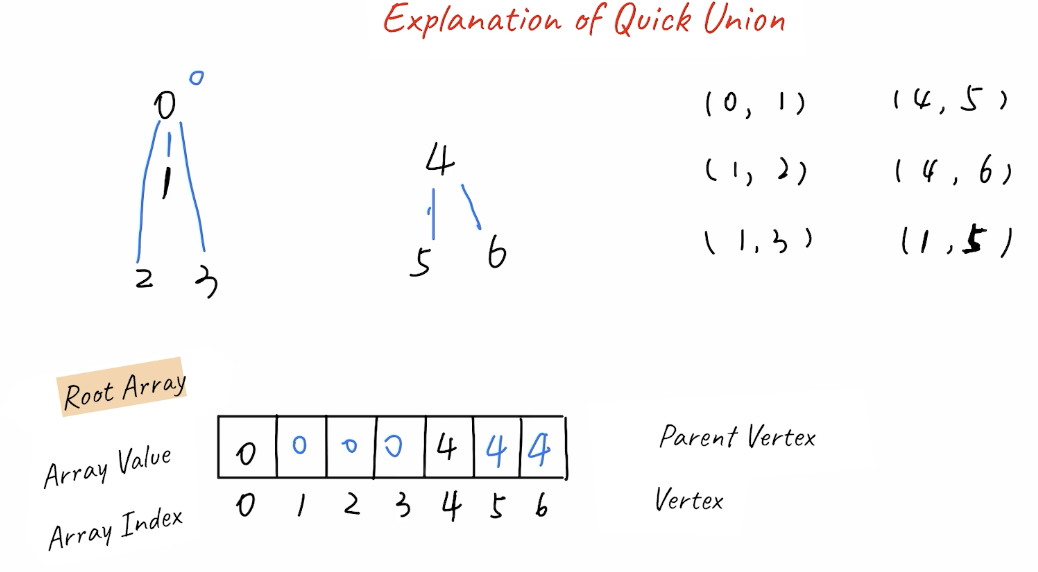 Explanation of Quick Union
0
0
1
2 3
4
5 6
(0, 1) (4, 5)
(1, 2) (4, 6)
(1, 3) (1, 5)
Root Array
Array Value 0 0 0 0 4 4 4 Parent Vertex
Array Index 0 1 2 3 4 5 6 Vertex